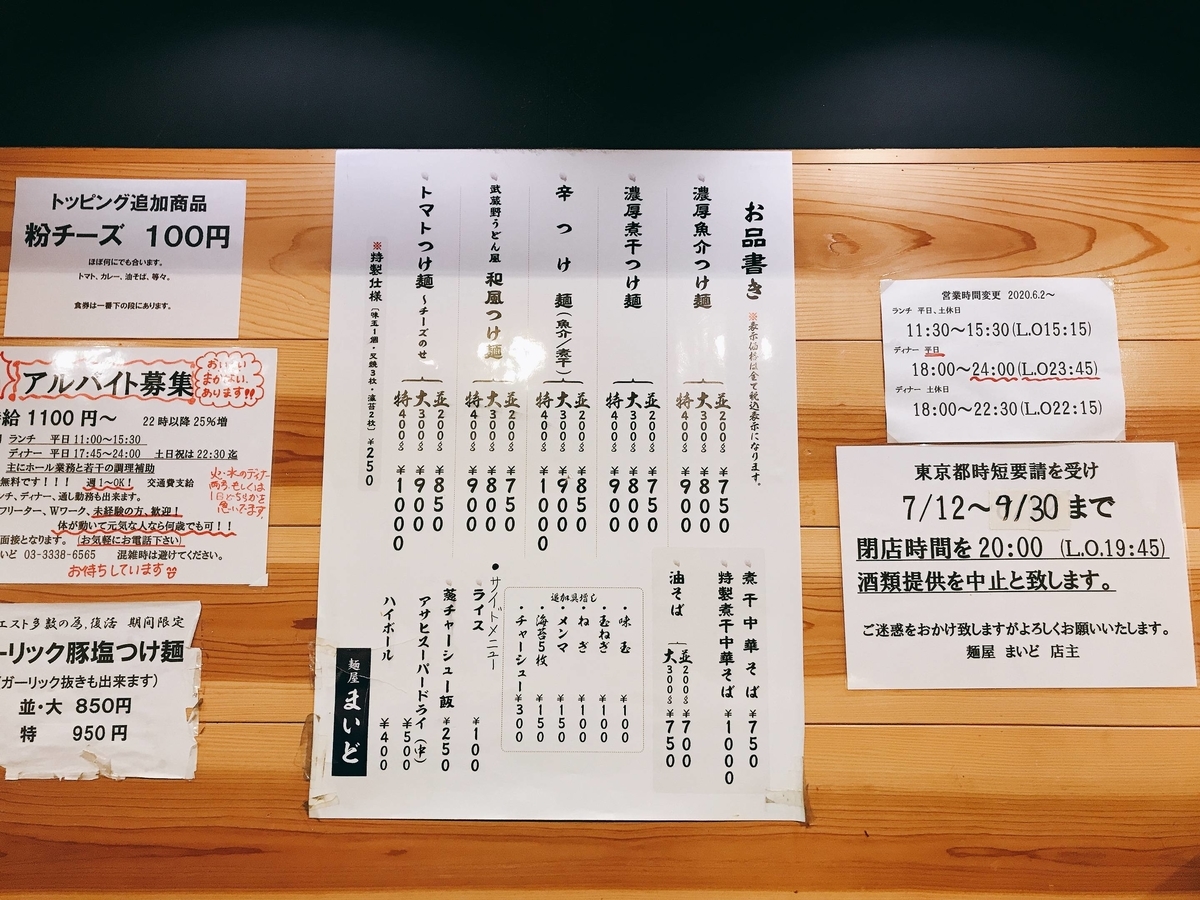 トッピング追加商品
粉チーズ 100円
ほぼ何にでも合います。
トマト、カレー、油そば、等々。
食券は一番下の段にあります。
アルバイト募集
おいしい
まかない
あります!!
給 1100円~ 22時以降25%増
ランチ 平日11:00~15:30
ディナー 平日17:45~24:00 土日祝は22:30迄
主にホール業務と若干の調理補助
無料です!!! 週1~OK! 交通費支給
ンチ、ディナー、通し勤務も出来ます。
フリーター、Wワーク、未経験の方、歓迎!
体が動いて元気な人なら何歳でも可!!
面接となります。お気軽にお電話下さい
いど 03-3338-6565 混雑時は避けてください。
お待ちしています
火・水のディナー
両方もしくは
1日どちらかを
急いでます。
エスト多数の為、復活 期間限定
ーリック豚塩つけ麺
ガーリック抜きも出来ます)
並・大 850円
特 950円
お品書き ※表示価格は全て税込表示になります。
濃厚魚介つけ麺
並200g ¥750
大300g ¥800
特400g ¥900
濃厚煮干つけ麺
並200g ¥750
大300g ¥800
特400g ¥900
辛つけ麺(魚介/煮干)
並200g ¥850
大300g ¥900
特400g ¥1000
武蔵野うどん風 和風つけ麺
並200g ¥750
大300g ¥800
特400g ¥900
トマトつけ麺~チーズのせ
並200g ¥850
大300g ¥900
特400g ¥1000
※特製仕様(味玉1個・叉焼3枚・海苔2枚) ¥250
煮干中華そば ¥750
特製煮干中華そば ¥1000
油そば
並200g ¥700
大300g ¥750
追加具増し
・味玉 ¥100
・玉ねぎ ¥100
・ねぎ ¥100
・メンマ ¥150
・海苔5枚 ¥150
・チャーシュー ¥300
●サイドメニュー
ライス ¥100
蒸チャーシュー飯 ¥250
アサヒスーパードライ(中) ¥500
ハイボール ¥400
麺屋 まいど
営業時間変更 2020.6.2~
ランチ 平日、土休日
11:30~15:30(L.O15:15)
ディナー 平日
18:00~24:00(L.O23:45)
ディナー 土休日
18:00~22:30(L.O22:15)
東京都時短要請を受け
7/12~9/30まで
閉店時間を20:00 (L.O.19:45)
酒類提供を中止と致します。
ご迷惑をおかけ致しますがよろしくお願いいたします。
麺屋 まいど 店主